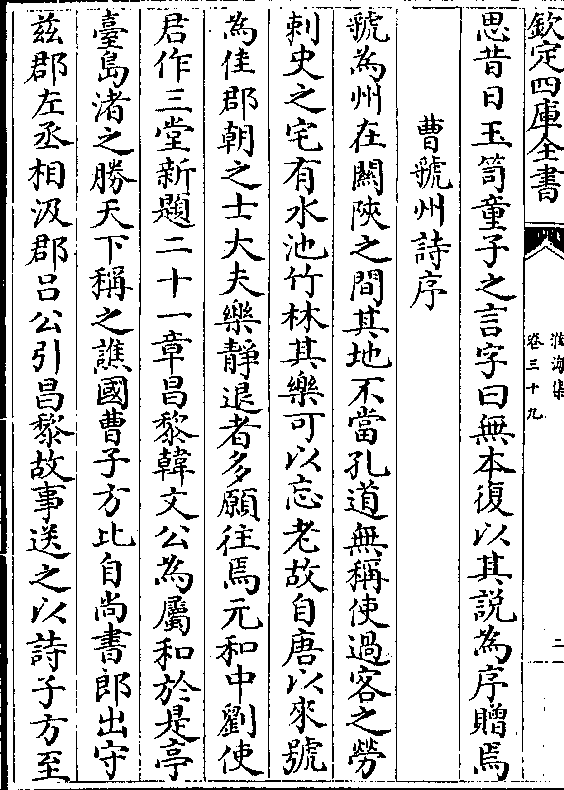 欽定四庫全書
淮海集
卷三十九
二
思昔日玉笥童子之言字曰無本復以其説為序贈焉
曹虢州詩序
虢為州在關陝之間其地不當孔道無稱使過客之勞
刺史之宅有水池竹林其樂可以忘老故自唐以來號
為佳郡朝之士大夫樂靜退者多願往焉元和中劉使
君作三堂新題二十一章昌黎韓文公為屬和於是亭
臺島渚之勝天下稱之譙國曹子方比自尚書郎出守
兹郡左丞相汲郡吕公引昌黎故事送之以詩子方至